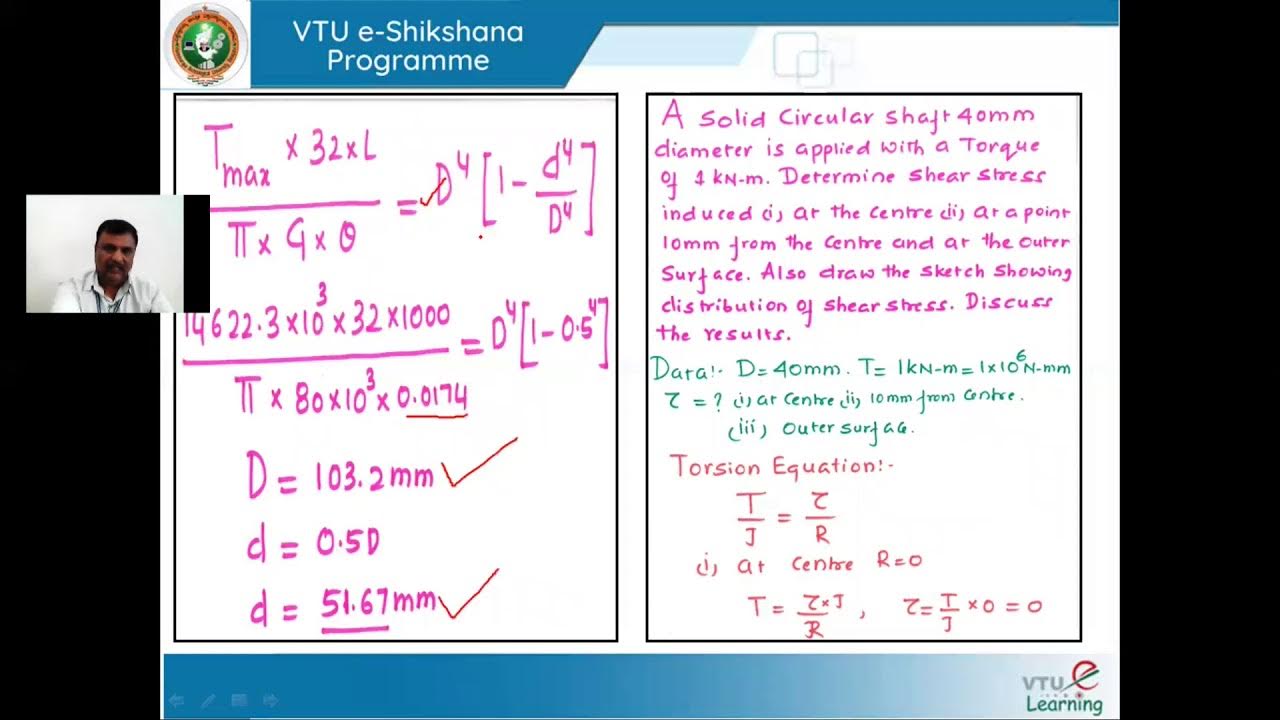 VTU e-Shikshana
Programme
T_max × 32×L / π× G×θ = D⁴ [1 - d⁴/D⁴]
14622.3×10³×32×1000 / π × 80×10³×0.0174 = D⁴[1-0.5⁴]
D = 103.2mm
d = 0.5D
d = 51.67mm
A Solid Circular shaft 40mm
diameter is applied with a Torque
of 1 kN-m. Determine shear stress
induced (i) at the centre (ii) at a point
10mm from the centre and at the outer
Surface. Also draw the sketch showing
distribution of shear stress. Discuss
the results.
Data:- D=40mm. T= 1kN-m=1×10⁶N-mm
τ = ? (i) at centre (ii) 10mm from centre.
(iii) outer surface.
Torsion Equation:-
T/J = τ/R
(i) at centre R=0
T = τ×J/R , τ = T/J × 0 = 0
VTU e
Learning